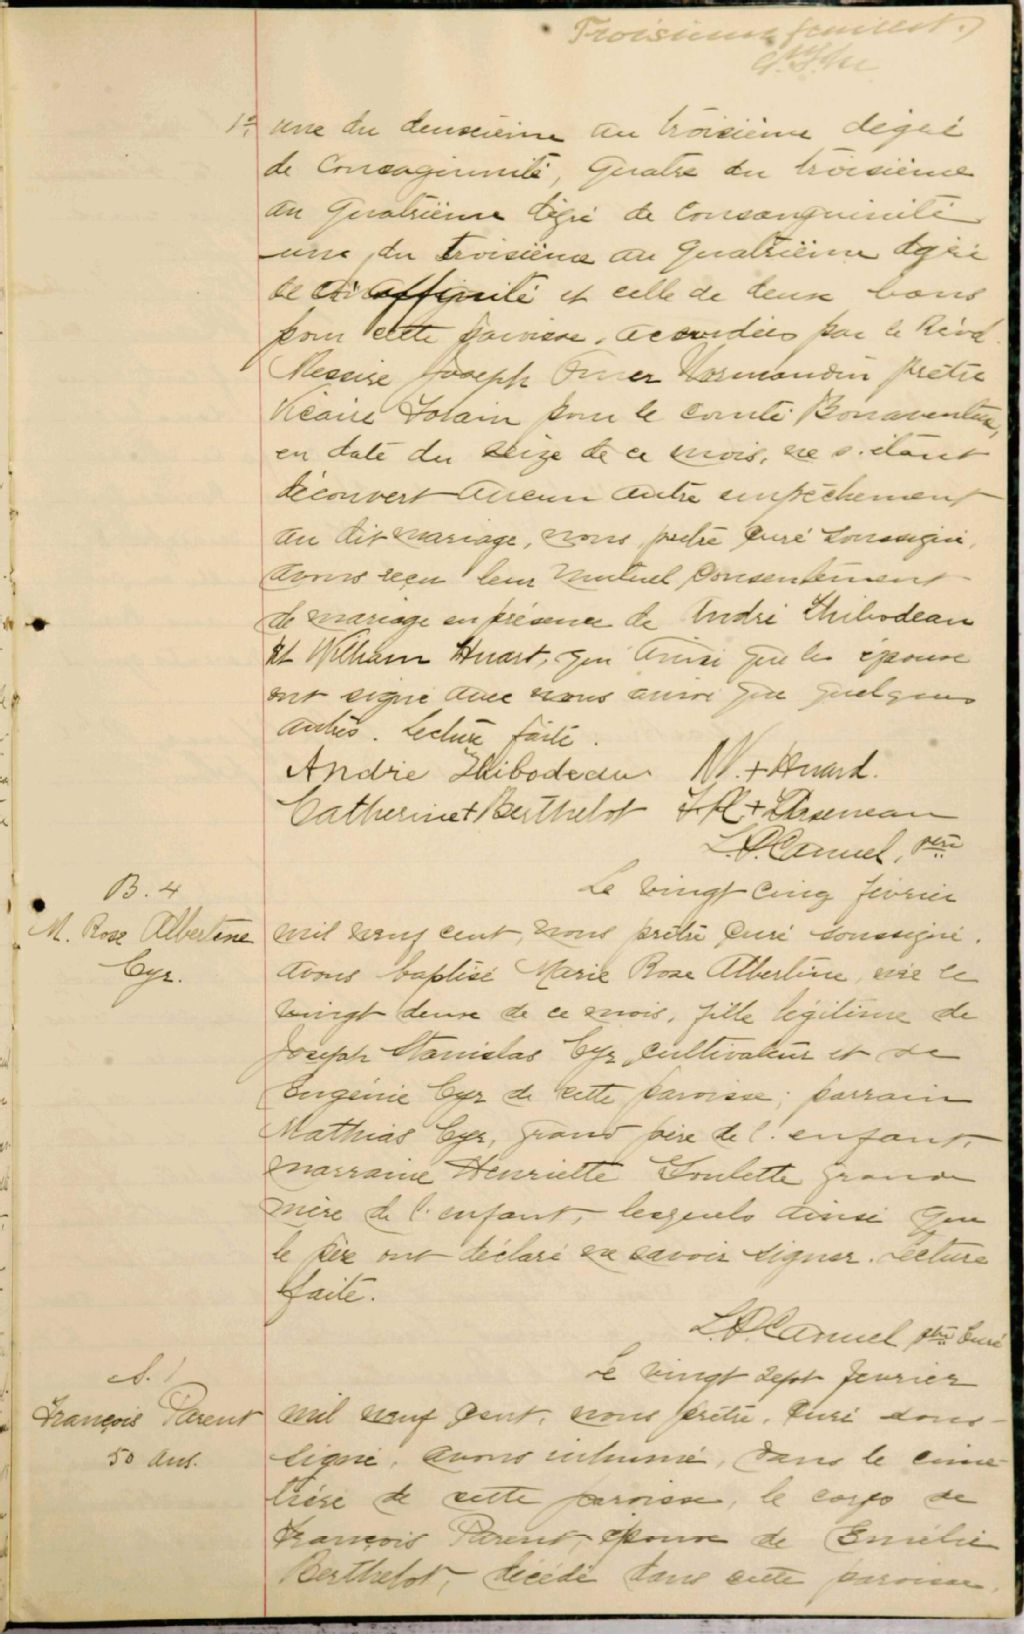 Troisieme feuillet.
1º. une du deuxième au troisième degré
de Consaginnité, quatre du troisième
au quatrième degré de Consanguinité
une du troisième au quatrième degré
de affinité et celle de deux bans
pour cette paroisse, accordées par le Révd.
Messire Joseph Omer Normandin prêtre
Vicaire Forain pour le comté Bonaventure,
en date du seize de ce mois, ne s'étant
découvert aucun autre empêchement
au dit mariage, nous, prêtre curé soussigné,
avons reçu leur mutuel consentement
de mariage en présence de André Thibodeau
et William Huart, qui ainsi que les époux
ont signé avec nous ainsi que quelques
autres. Lecture faite.
Andre Thibodeau W. + Huard.
Catherine + Berthelot + Arseneau
L.P. Canuel, ptre
B. 4
M. Rose Albertine
Cyr.
Le vingt cinq février
mil neuf cent, nous prêtre curé soussigné.
avons baptisé Marie Rose Albertine, née le
vingt deux de ce mois, fille légitime de
Joseph Stanislas Cyr, cultivateur et de
Eugénie Cyr de cette paroisse; parrain
Mathias Cyr, grand père de l'enfant,
marraine Henriette Goulette grand
mère de l'enfant, lesquels ainsi que
le père ont déclaré ne savoir signer. Lecture
faite.
L.P. Canuel ptre Curé
S. 1
François Parent
50 ans.
Le vingt sept fevrier
mil neuf cent, nous prêtre, curé sous-
signé, avons inhumé, dans le cime-
tière de cette paroisse, le corps de
François Parent, époux de Emélie
Berthelot, décédé dans cette paroisse,